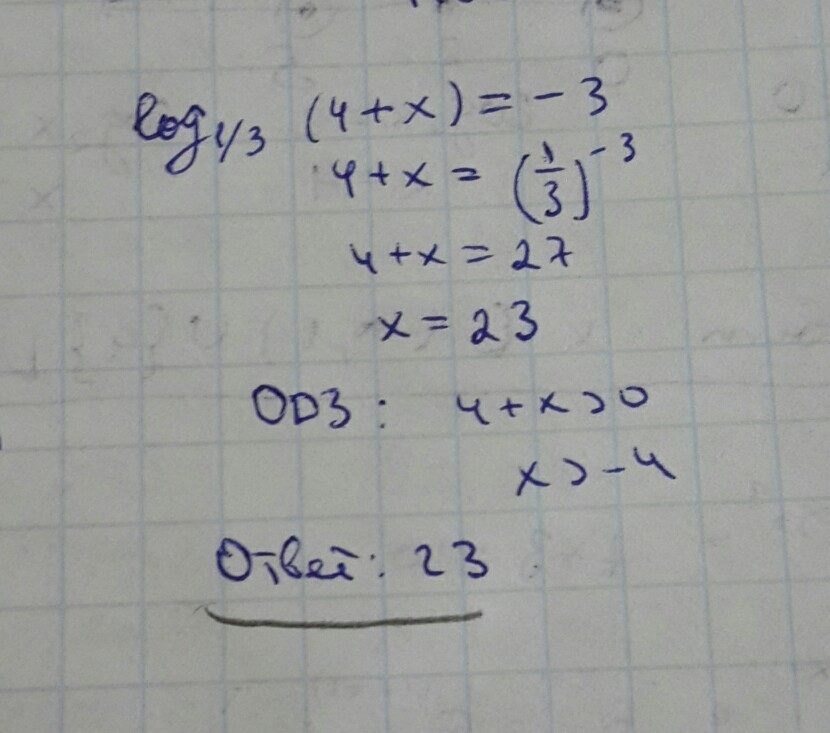 log₁/₃ (4+x) = -3
4+x = (1/3)⁻³
4+x = 27
x = 23
ОДЗ: 4+x>0
x>-4
Ответ: 23